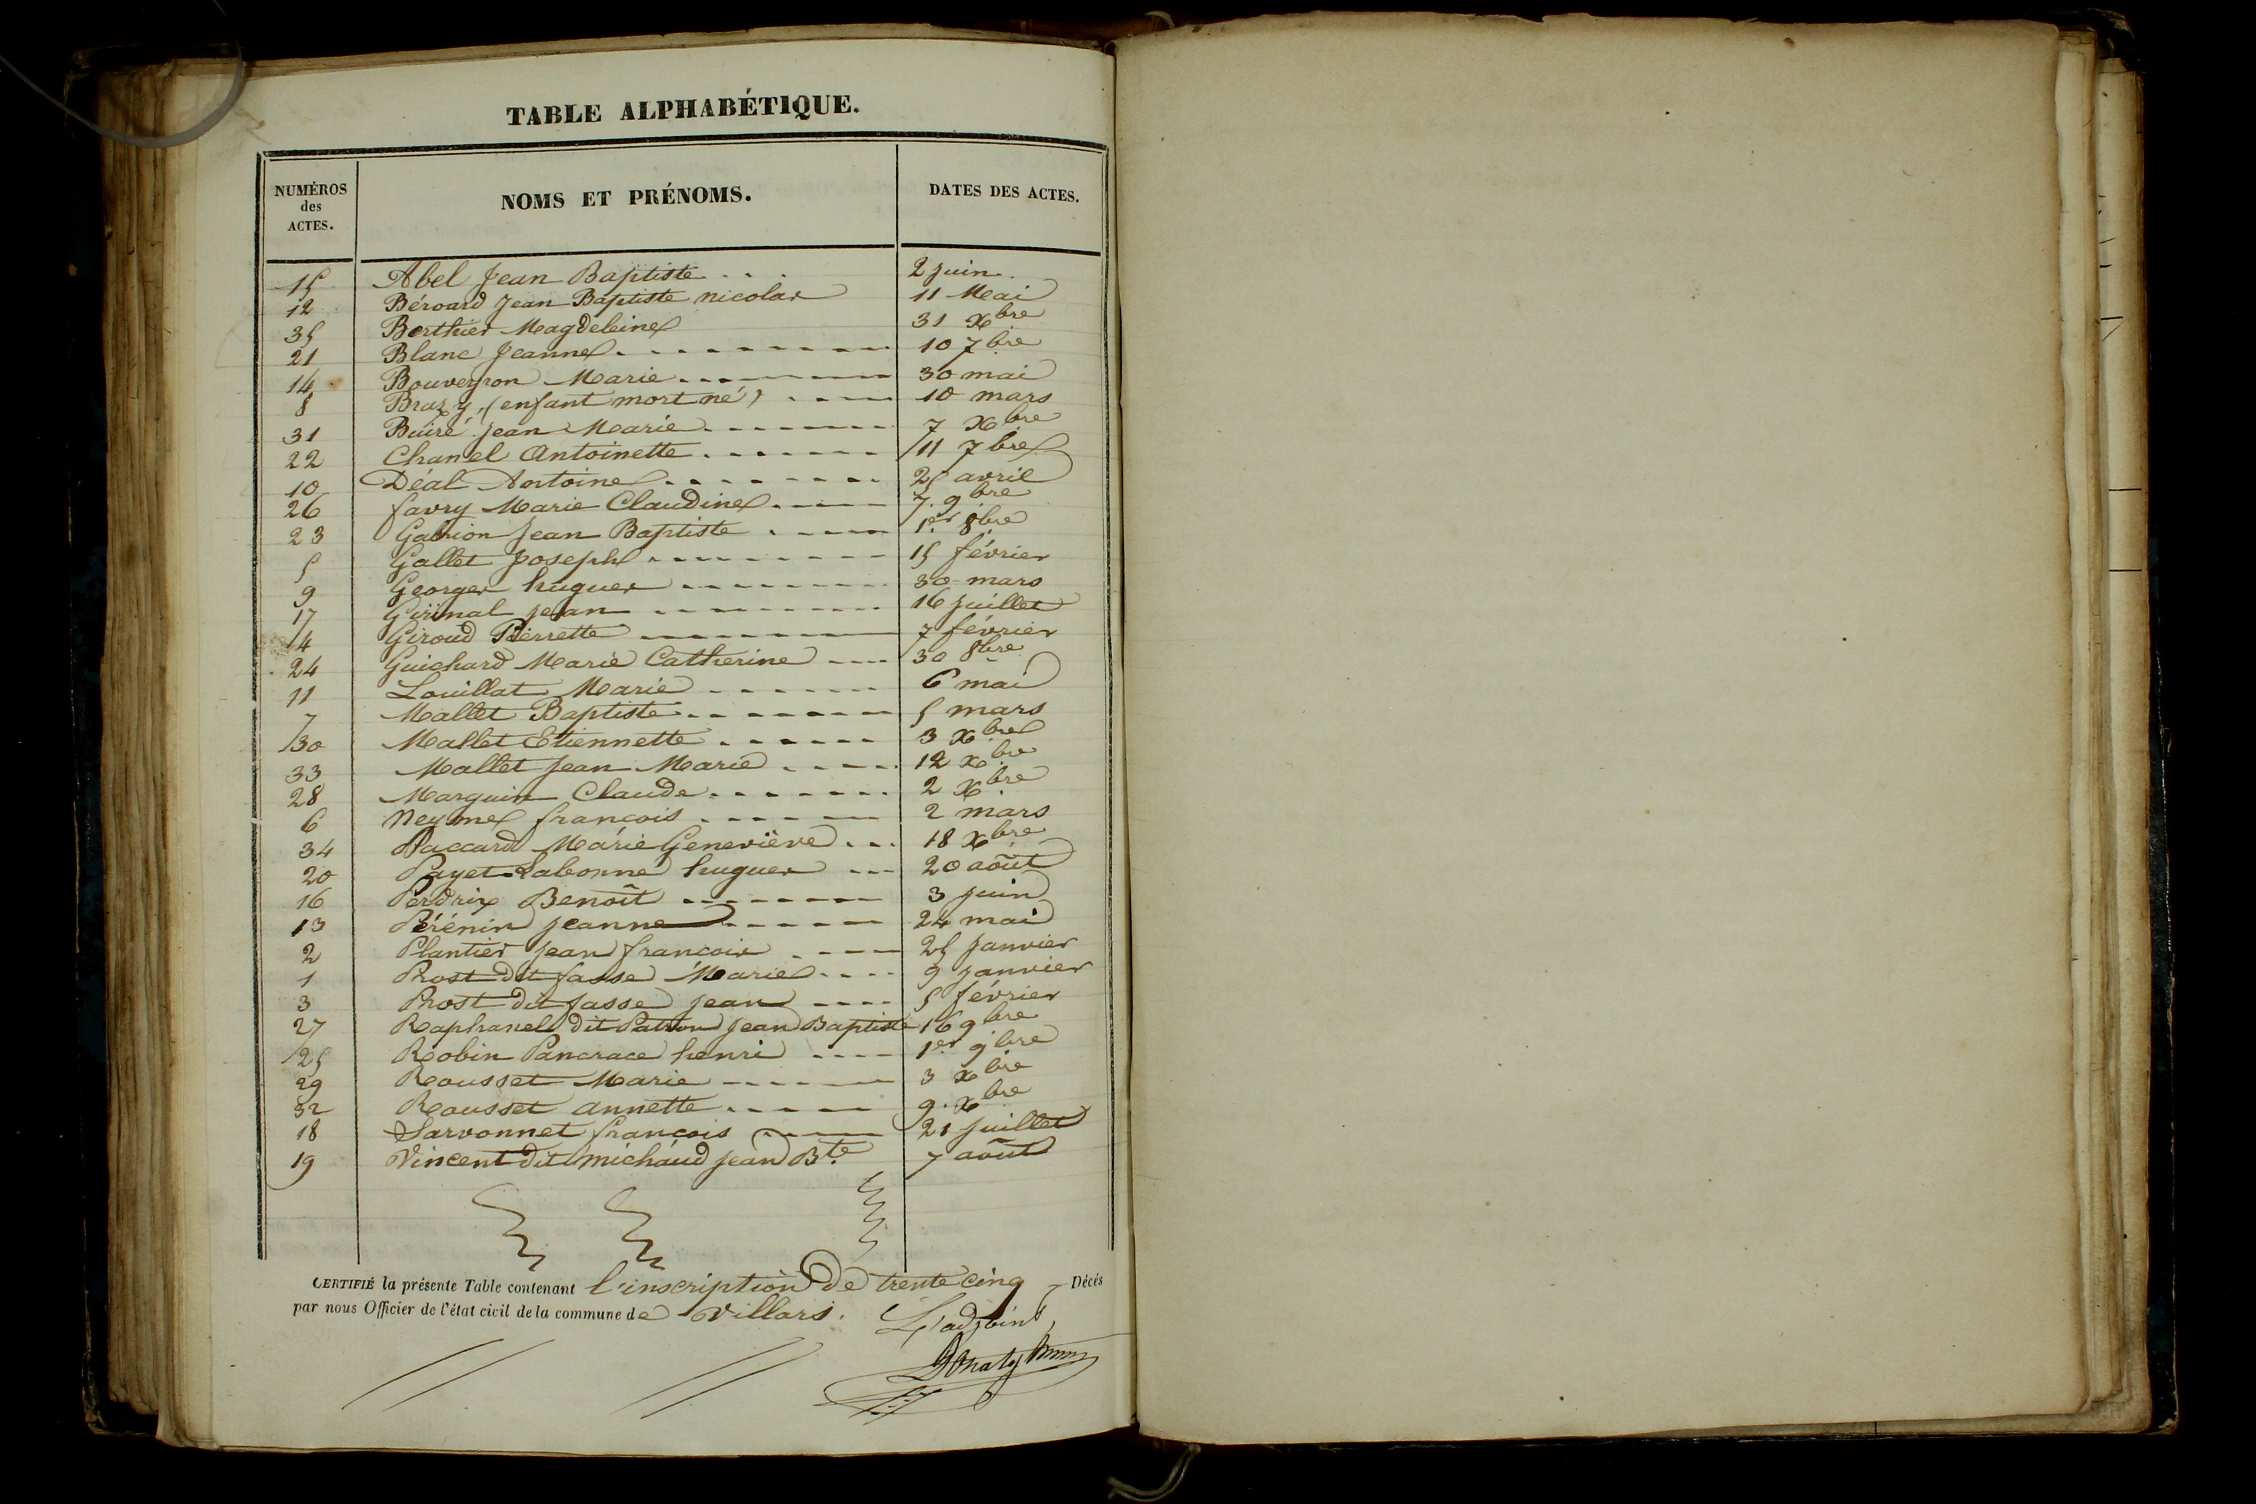 TABLE ALPHABÉTIQUE.
NUMÉROS des ACTES. NOMS ET PRÉNOMS. DATES DES ACTES.
15 Abel Jean Baptiste 2 juin
12 Béroard Jean Baptiste nicolas 11 Mai
35 Berthier Magdeleine 31 Xbre
21 Blanc Jeanne 10 7bre
14 Bouveyron Marie 30 mai
8 Brazy, (enfant mort né) 10 mars
31 Buiré jean Marie 7 Xbre
22 Chanel Antoinette 11 7bre
10 Déal Antoine 25 avril
26 favry Marie Claudine 7. 9bre
23 Jean Baptiste 1er 8bre
5 Gallet Joseph 15 février
9 Georges hugues 30 mars
17 Girinal jean 16 juillet
4 Giroud Pierrette 7 février
24 Guichard Marie Catherine 30 8bre
11 Louillat Marie 6 mai
7 Mallet Baptiste 5 mars
30 Mallet Etiennette 3 Xbre
33 Mallet Jean Marie 12 Xbre
28 Marguin Claude 2 Xbre
6 françois 2 mars
34 Paccard Marie Geneviève 18 Xbre
20 Payet Labonne hugues 20 août
16 Perdrix Benoît 3 juin
13 Pérénin jeanne 24 mai
2 Plantier jean françois 25 janvier
1 Prost dit fasse Marie 9 janvier
3 Prost dit fasse jean 5 février
27 Raphanel dit Patron jean Baptiste 16 9bre
25 Robin Pancrace henri 1er 9bre
29 Rousset Marie 3 Xbre
32 Rousset annette 9. Xbre
18 Sarvonnet françois 21 juillet
19 Vincent dit michaud jean Bte. 7 août
CERTIFIÉ la présente Table contenant l'inscription de trente cinq Décés
par nous Officier de l'état civil de la commune de Villars.
L'adjoint,